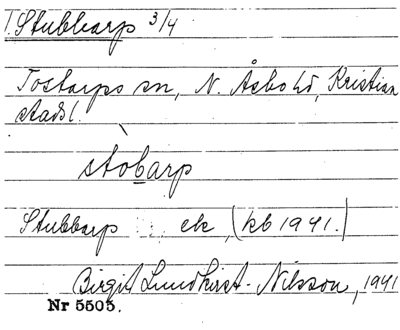 1. Stubbarp 3/4
Tostarps sn, N. Åsbo hd, Kristian
stads l.
stòbarp
Stubbarp ek, (kb 1941.)
Birgit Lundkvist-Nilsson, 1941
Nr 5505.